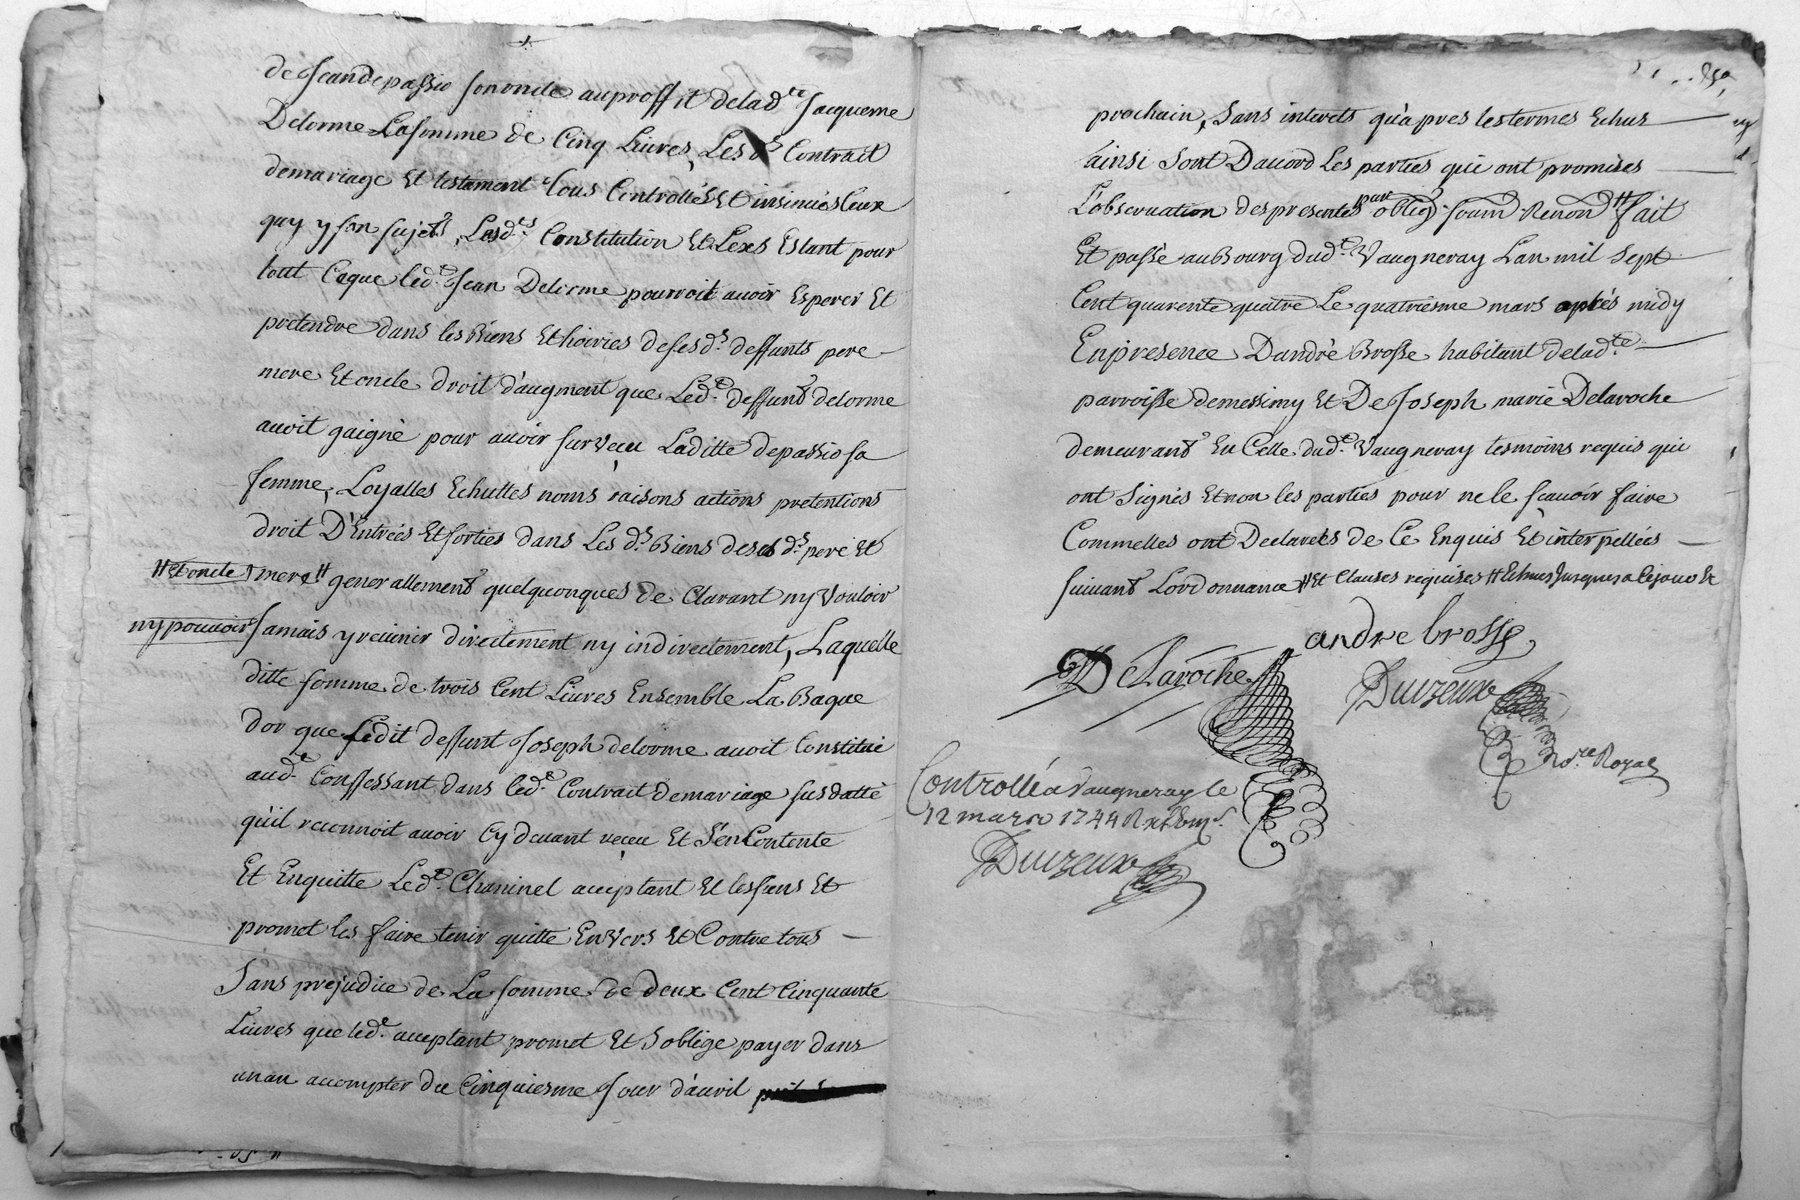 de Jean depassio son oncle au proffit de lad.te Jacqueme
Delorme La somme de Cinq Liures, Les d.s Contrait
demariage Et testament tous Controllés Et insinués Ceux
quy y son sujets, Lesd.es Constitution Et Lexs Estant pour
tout Ceque led.t Jean Delorme pourroit auoir Esperer Et
pretendre dans les Biens Et hoiries desesd.s deffunts pere
mere Et oncle droit d'augment que Led.t deffunt delorme
auoit gaigné pour auoir survecu Laditte depassio sa
femme, Loyalles Echuttes noms raisons actions pretentions
droit D'Entrées Et sorties dans Les d.s Biens deses d.s pere Et
# Et oncle mere # generallement quelquonques de Clarant ny Vouloir
ny pouuoir Jamais y reuenir directement ny indirectement, Laquelle
ditte somme de trois Cent Liures Ensemble La Bague
dor que ledit deffunt Joseph delorme auoit Constitué
aud.t Conffessant dans led.t Contrait demariage susdatté
quil reconnoit auoir Cy deuant receu Et S'en Contente
Et Enquitte Led.t Chaninel acceptant Et les sans Et
promet les faire tenir quitte EnVers Et Contre tous
Sans prejudice de La somme de deux Cent Cinquante
Liures que led.t acceptant promet Et S'oblige payer dans
un an accompter du Cinquiesme Jour d'auril
prochain, Sans interets qu'apres les termes Echus
ainsi Sont Dacord Les parties qui ont promises
L'obseruation des presentes par oblig. soum. Renon. # fait
Et passé au Bourg dud.t Vaugneray Lan mil Sept
Cent quarente quatre Le quatriesme mars aprés midy
En presence D'andré Brosse habitant delad.te
parroisse demessimy Et De Joseph marie Delaroche
demeurant En Celle dud.t Vaugneray tesmoins requis qui
ont Signés Et non les parties pour ne le scauoir faire
Commelles ont Declarées de Ce Enquis Et interpellées
suiuant Lordonnance # Et Clauses requises # Echus Jusques a Cejour &
andre brosse
DeLaroche
Duizeux
No.re Royal
Controllé a Vaugneray le
12 mars 1744
Duizeux